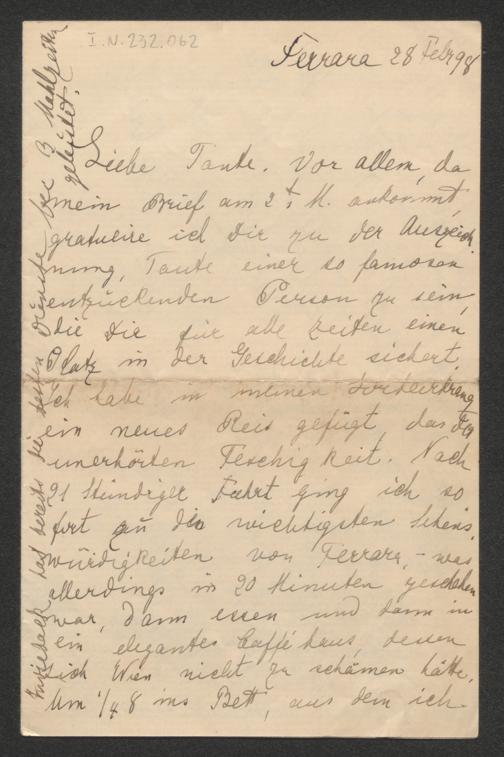 I.N. 232.062
Ferrara 28 Febr 98
Liebe Tante. Vor allem, da
mein Brief am 2t M. ankommt,
gratulire ich Dir zu der Auszeich
nung, Tante einer so famosen
entzückenden Person zu sein,
die Dir für alle Zeiten einen
Platz in der Geschichte sichert
Ich habe in meinen Lorbeerkranz
ein neues Reis gefügt, das der
unerhörten Feschigkeit. Nach
21 stündiger Fahrt ging ich so
fort zu die wichtigsten Sehens
würdigkeiten von Ferrara, - was
allerdings in 20 Minuten geschehen
war, dann essen und dann in
ein elegantes Caffehaus, dessen
sich Wien nicht zu schämen hätte.
Um 1/4 8 ins Bett, aus dem ich
hat bereits die besten Dienste bei 3 Mahlzeiten
geleistet.